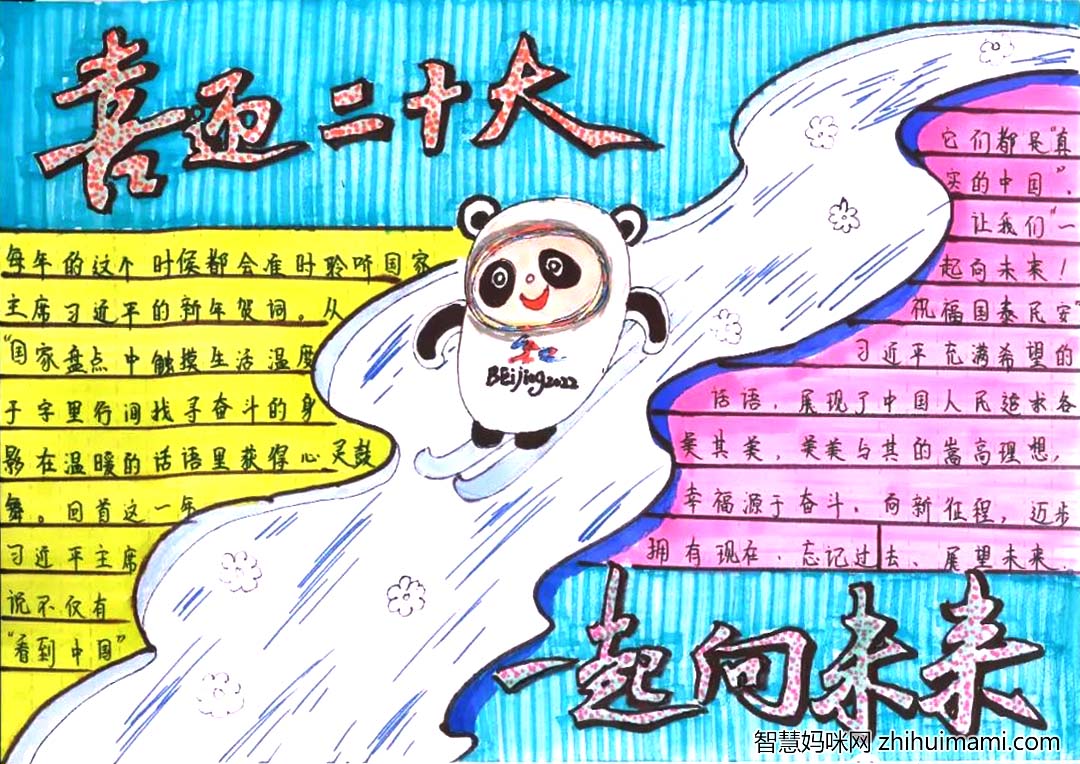 喜迎二十大
每年的这个时候都会准时聆听国家
主席习近平的新年贺词。从
“国家盘点中触摸生活温度
于字里行间找寻奋斗的身
影在温暖的话语里获得心灵鼓
舞。回首这一年
习近平主席
说不仅有
“看到中国”
BEijing2022
它们都是“真
实的中国”，
让我们“一
起向未来！
祝福国泰民安”
习近平充满希望的
话语，展现了中国人民追求各
美其美，美美与其的嵩高理想，
幸福源于奋斗，向新征程，迈步
拥有现在、忘记过去、展望未来。
一起向未来
智慧妈咪网 zhihuimami.com